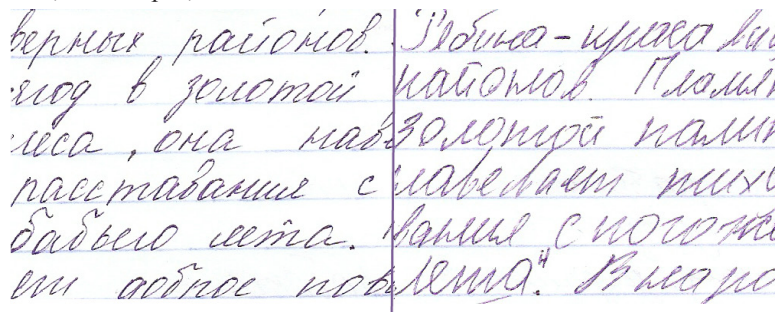 верных районов.
ягод в золотой
леса, она нав
расставания с
бабьего лета.
ет доброе пов
"Рябина - краса
районов. Пламя
золотой
навевает тихо
вания с погоже
лета". В наро